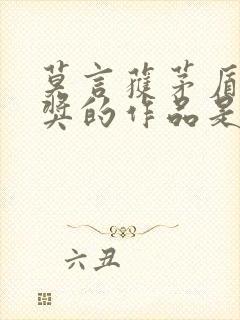 莫言獲茅盾
獎的作品是
六丑